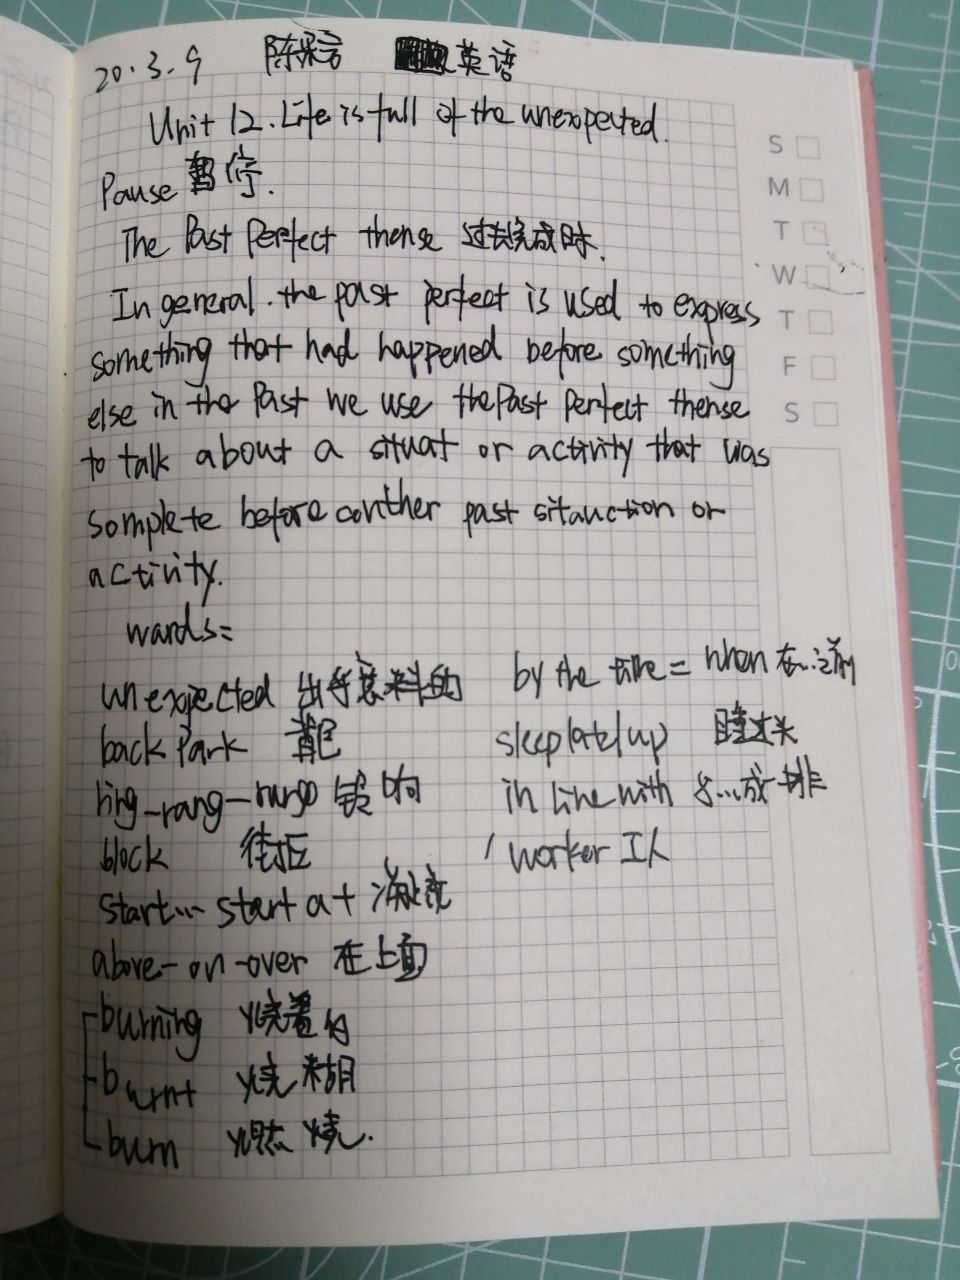 20.3.9 陈 言 英语
Unit 12. Life is full of the unexpected.
Pause 暂停.
The Past Perfect thense 过去完成时.
In general. the past perfect is used to express
something that had happened before something
else in the Past we use the Past Perfect thense
to talk about a situat or activity that was
somplete before conther past sitauction or
activity.
wards=
unexpected 出乎意料的
back Park 背包
ring-rang-rungo 铃响
block 街区
start... start at
above-on-over 在上面
burning 烧着的
burnt 烧糊
burn 燃烧.
by the time = when 在...之前
sleep late/up 睡过头
in line with 与...成一排
worker 工人
S
M
T
W
T
F
S